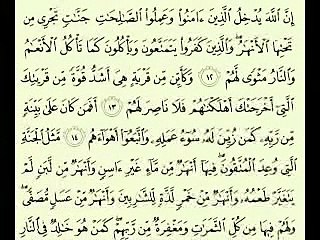 إِنَّ ٱللَّهَ يُدْخِلُ ٱلَّذِينَ ءَامَنُوا۟ وَعَمِلُوا۟ ٱلصَّـٰلِحَـٰتِ جَنَّـٰتٍ تَجْرِى مِن
تَحْتِهَا ٱلْأَنْهَـٰرُ ۖ وَٱلَّذِينَ كَفَرُوا۟ يَتَمَتَّعُونَ وَيَأْكُلُونَ كَمَا تَأْكُلُ ٱلْأَنْعَـٰمُ
وَٱلنَّارُ مَثْوًى لَّهُمْ ١٢ وَكَأَيِّن مِّن قَرْيَةٍ هِىَ أَشَدُّ قُوَّةً مِّن قَرْيَتِكَ
ٱلَّتِىٓ أَخْرَجَتْكَ أَهْلَكْنَـٰهُمْ فَلَا نَاصِرَ لَهُمْ ١٣ أَفَمَن كَانَ عَلَىٰ بَيِّنَةٍ
مِّن رَّبِّهِۦ كَمَن زُيِّنَ لَهُۥ سُوٓءُ عَمَلِهِۦ وَٱتَّبَعُوٓا۟ أَهْوَآءَهُم ١٤ مَّثَلُ ٱلْجَنَّةِ
ٱلَّتِى وُعِدَ ٱلْمُتَّقُونَ ۖ فِيهَآ أَنْهَـٰرٌ مِّن مَّآءٍ غَيْرِ ءَاسِنٍ وَأَنْهَـٰرٌ مِّن لَّبَنٍ لَّمْ
يَتَغَيَّرْ طَعْمُهُۥ وَأَنْهَـٰرٌ مِّنْ خَمْرٍ لَّذَّةٍ لِّلشَّـٰرِبِينَ وَأَنْهَـٰرٌ مِّنْ عَسَلٍ مُّصَفًّى ۖ
وَلَهُمْ فِيهَا مِن كُلِّ ٱلثَّمَرَٰتِ وَمَغْفِرَةٌ مِّن رَّبِّهِمْ ۖ كَمَنْ هُوَ خَـٰلِدٌ فِى ٱلنَّارِ